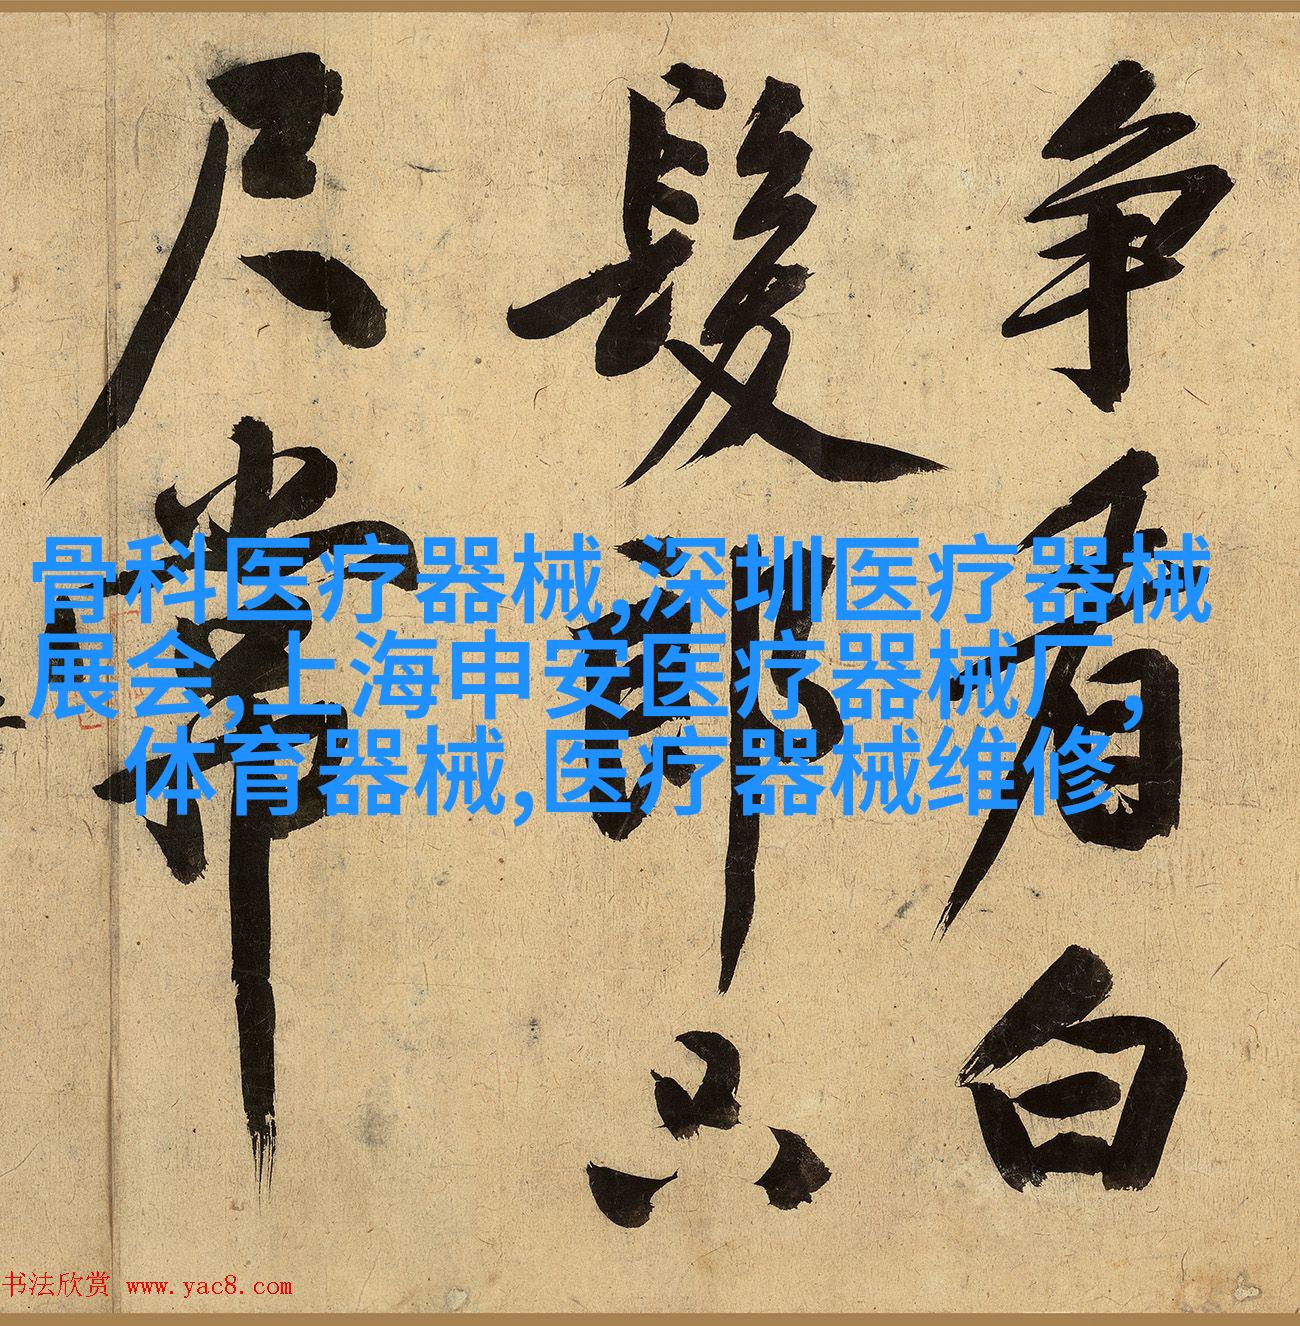 争看白
髮郎只
尺常
骨科医疗器械,深圳医疗器械
展会,上海申安医疗器械厂,
体育器械,医疗器械维修
书法欣赏 www.yac8.com